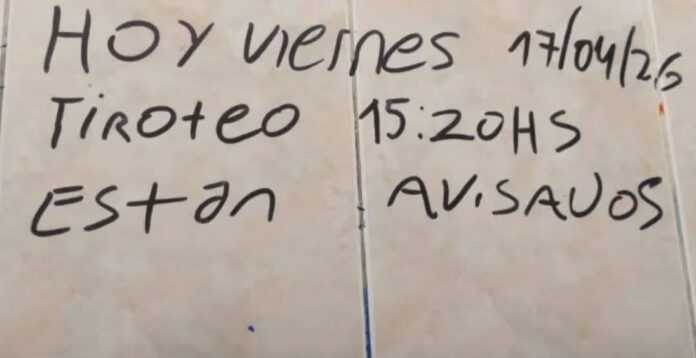 HOY viernes 17/04/26
TiROteO 15:20HS
EStan AViSAdOS